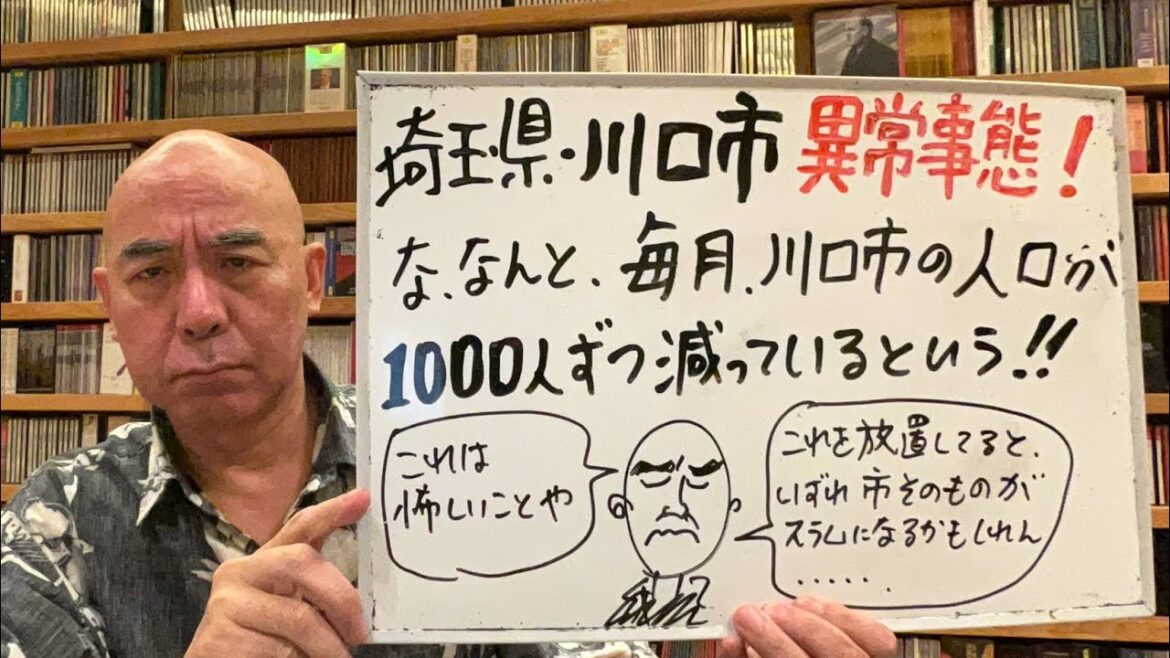 埼玉県・川口市 異常事態!
な、なんと、毎月、川口市の人口が
1000人ずつ減っているという!!
これは
怖しいことや
これを放置してると、
いずれ市そのものが
スラムになるかもしれん
・・・・・